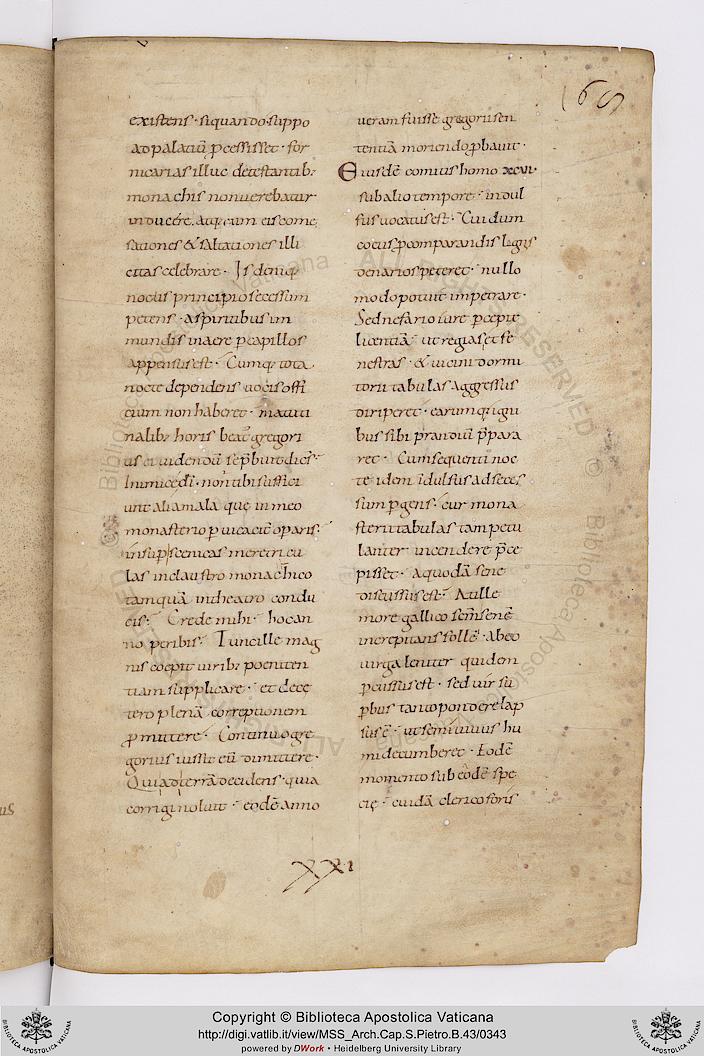 165
existens · siquando suppo
ad palatiũ pcessisset · for
nicarias illuc detestantib;
monachis non uerebatur
inducere. atq; cum eis come
sationes & saltationes illi
citas celebrare · Is deniq;
noctis principio secessum
petens · a spiritibus im
mundis in aere p capillos
appensus est · Cumq; tota
nocte dependens uocis offi
cium non haberet · matuti
nalib; horis beatˢ gregori
us ei uidendũ se p̃buit dicẽs·
Inimice dĩ · non tibi suffici
unt alia mala que in meo
monasterio puicacit̃ opᵃris·
insup scenicas meretricu
las in claustro monachico
tamquã in theatro condu
cis · Crede mihi · hoc an
no peribis · Tunc ille mag
nis coepit uirib; poeniten
tiam supplicare · et dece
tero plenã correptionem
pmittere · Continuo gre
gorius iussit eũ dimittere ·
Qui ad terrã decidens · quia
corrigi noluit · eodẽ anno
ueram fuisse gregorii sen
tentiã moriendo pbauit ·
Eiusdẽ comitis homo XCVI
sub alio tempore · indul
fus uocatus est · Cui dum
cocus p comparandis lignis
denarios peteret · nullo
modo potuit impetrare ·
Sed nefario iure pcepit
licentiã · ut regias et fe
nestras · & uicini dormi
torii tabulas aggressus
diriperet · earumq; igni
bus sibi prandiũ p̃para
ret · Cum sequenti noc
te idem idulfus ad seces
sum pgens · cur mona
sterii tabulas tam petu
lanter incendere p̃ce
pisset · a quodã sene
discussus est · At ille
more gallico scm̃ senẽ
increpitans follẽ · ab eo
uirga leniter quidem
pcussus est · sed uir su
pbus tanto pondere lap
sus ẽ · ut semiuiuus hu
mi decumberet · Eodẽ
momento sub eodẽ spe
cię · cuidã clerico foris
XXI
Copyright © Biblioteca Apostolica Vaticana
http://digi.vatlib.it/view/MSS_Arch.Cap.S.Pietro.B.43/0343
powered by DWork · Heidelberg University Library